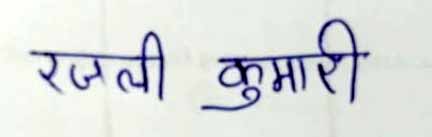 रजली कुमारी